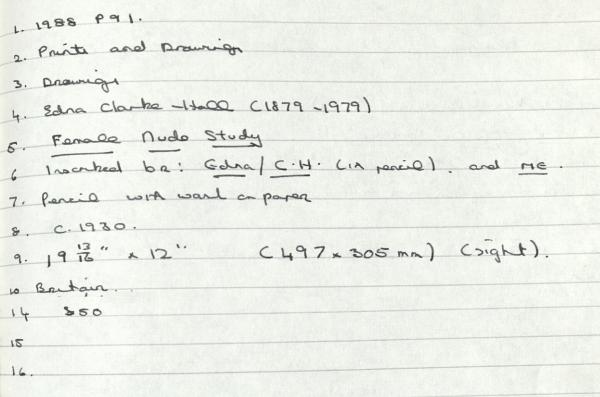 1. 1988 P91.
2. Prints and Drawings
3. Drawings
4. Edna Clarke-Hall (1879-1979)
5. Female Nude Study
6 Inscribed b.r: Edna/C.H. (in pencil). and ME.
7. Pencil with wash on paper
8. c. 1930.
9. 19 13/16" x 12" (497 x 305 mm) (sight).
10 Britain.
14 $50
15
16.